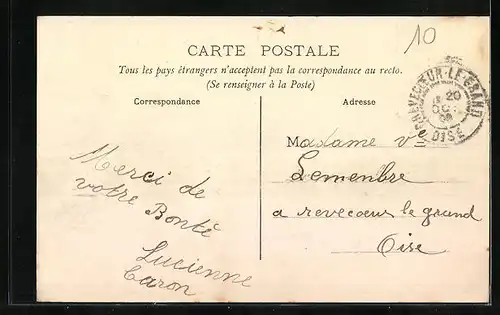 10
CARTE POSTALE
Tous les pays étrangers n'acceptent pas la correspondance au recto.
(Se renseigner à la Poste)
Correspondance
Adresse
CREVECŒUR-LE-GRAND
20
OISE
Madame Ve
Lemenbre
a revecoeur le grand
Oise
Merci de
votre Bonté
Lucienne
Caron